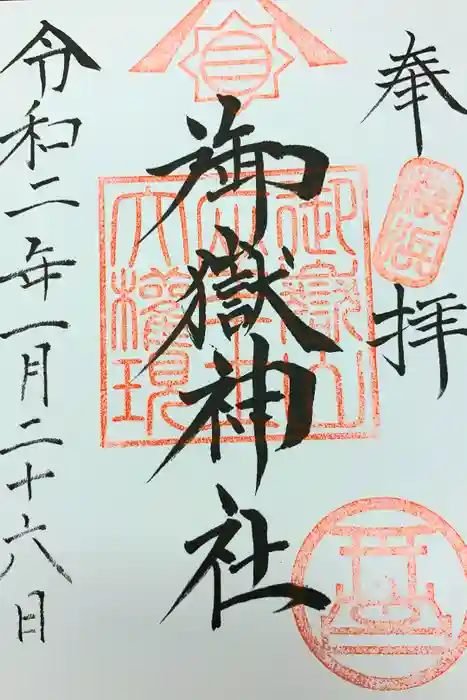 奉拝
横浜
御嶽神社
御嶽山
大権現
令和二年一月二十六日